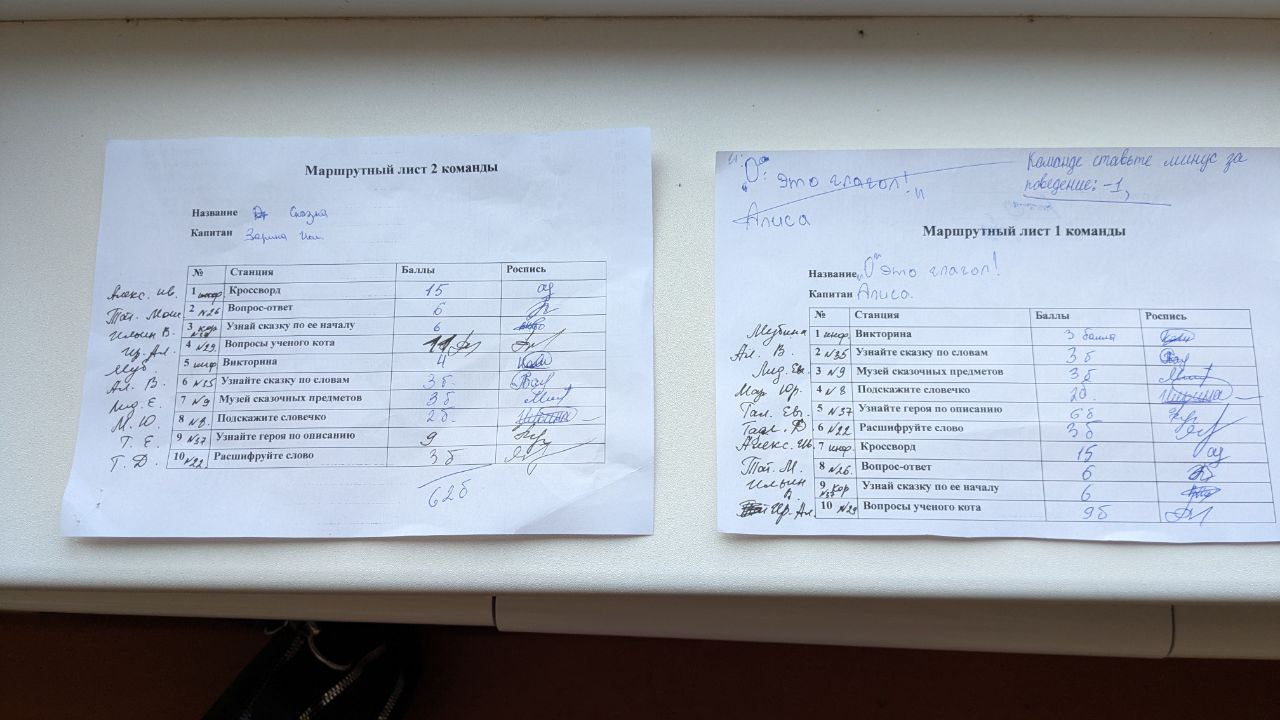 Маршрутный лист 2 команды
Название Сказка
Капитан Зарина
№ Станция Баллы Роспись
Алекс. ив. 1 инф Кроссворд 15
2 №26 Вопрос-ответ 6
Ильин В. 3 кор Узнай сказку по ее началу 6
Ир. Ал. 4 №29 Вопросы ученого кота 11
Муб. 5 инф Викторина 4
Ал. В. 6 №35 Узнайте сказку по словам 3 б.
Лид. Е. 7 №9 Музей сказочных предметов 3 б
М. Ю. 8 №8 Подскажите словечко 2 б.
Т. Е. 9 №37 Узнайте героя по описанию 9
Т. Д. 10 №22 Расшифруйте слово 3 б
62 б
„О" это глагол!"
Алиса
Команде ставьте минус за
поведение: -1,
Маршрутный лист 1 команды
Название „О" это глагол!
Капитан Алиса.
№ Станция Баллы Роспись
1 инф Викторина 3 балла
Ал. В. 2 №35 Узнайте сказку по словам 3 б
Лид. Ев. 3 №9 Музей сказочных предметов 3 б
Мар. Юр. 4 №8 Подскажите словечко 2 б.
Тат. Евг. 5 №37 Узнайте героя по описанию 6 б
6 №22 Расшифруйте слово 3 б
Алекс. Ив. 7 инф. Кроссворд 15
Тат. М. 8 №26 Вопрос-ответ 6
Ильин В. 9 кор Узнай сказку по ее началу 6
Ир. Ал. 10 №29 Вопросы ученого кота 9 б